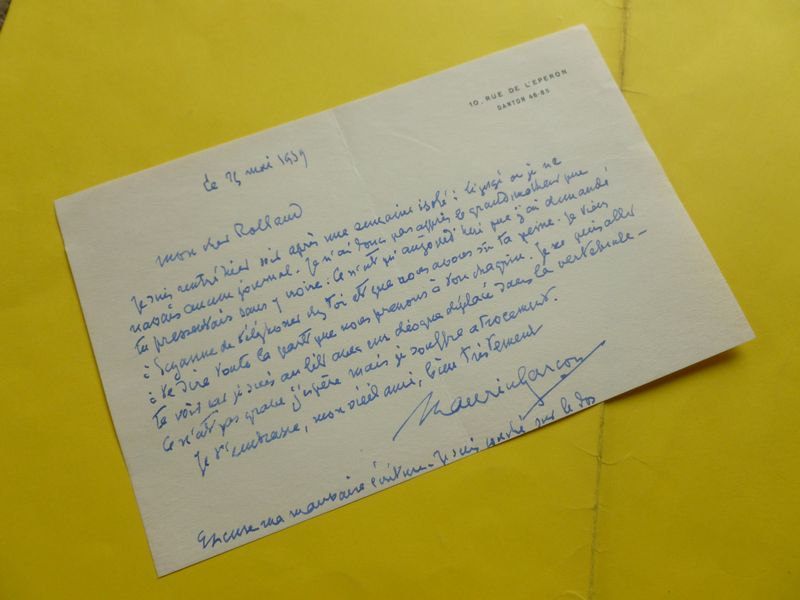 10, RUE DE L'EPERON
DANTON 48-65
Le 25 mai 1939
mon cher Rolland
Je suis rentré hier soir après une semaine isolé : ligugé où je ne
recevais aucun journal. Je n'ai donc pas appris le grand malheur que
tu pressentais sans y croire. Ce n'est qu'aujourd'hui que j'ai demandé
à Suzanne de téléphoner chez toi et que nous avons su ta peine. Je viens
te dire toute la part que nous prenons à ton chagrin. Je ne puis aller
te voir car je suis au lit avec un disque déplacé dans la vertébrale -
Ce n'est pas grave j'espère mais je souffre atrocement.
Je t'embrasse, mon vieil ami, bien tristement
Maurice Garçon
Excuse ma mauvaise écriture - Je suis couché sur le dos